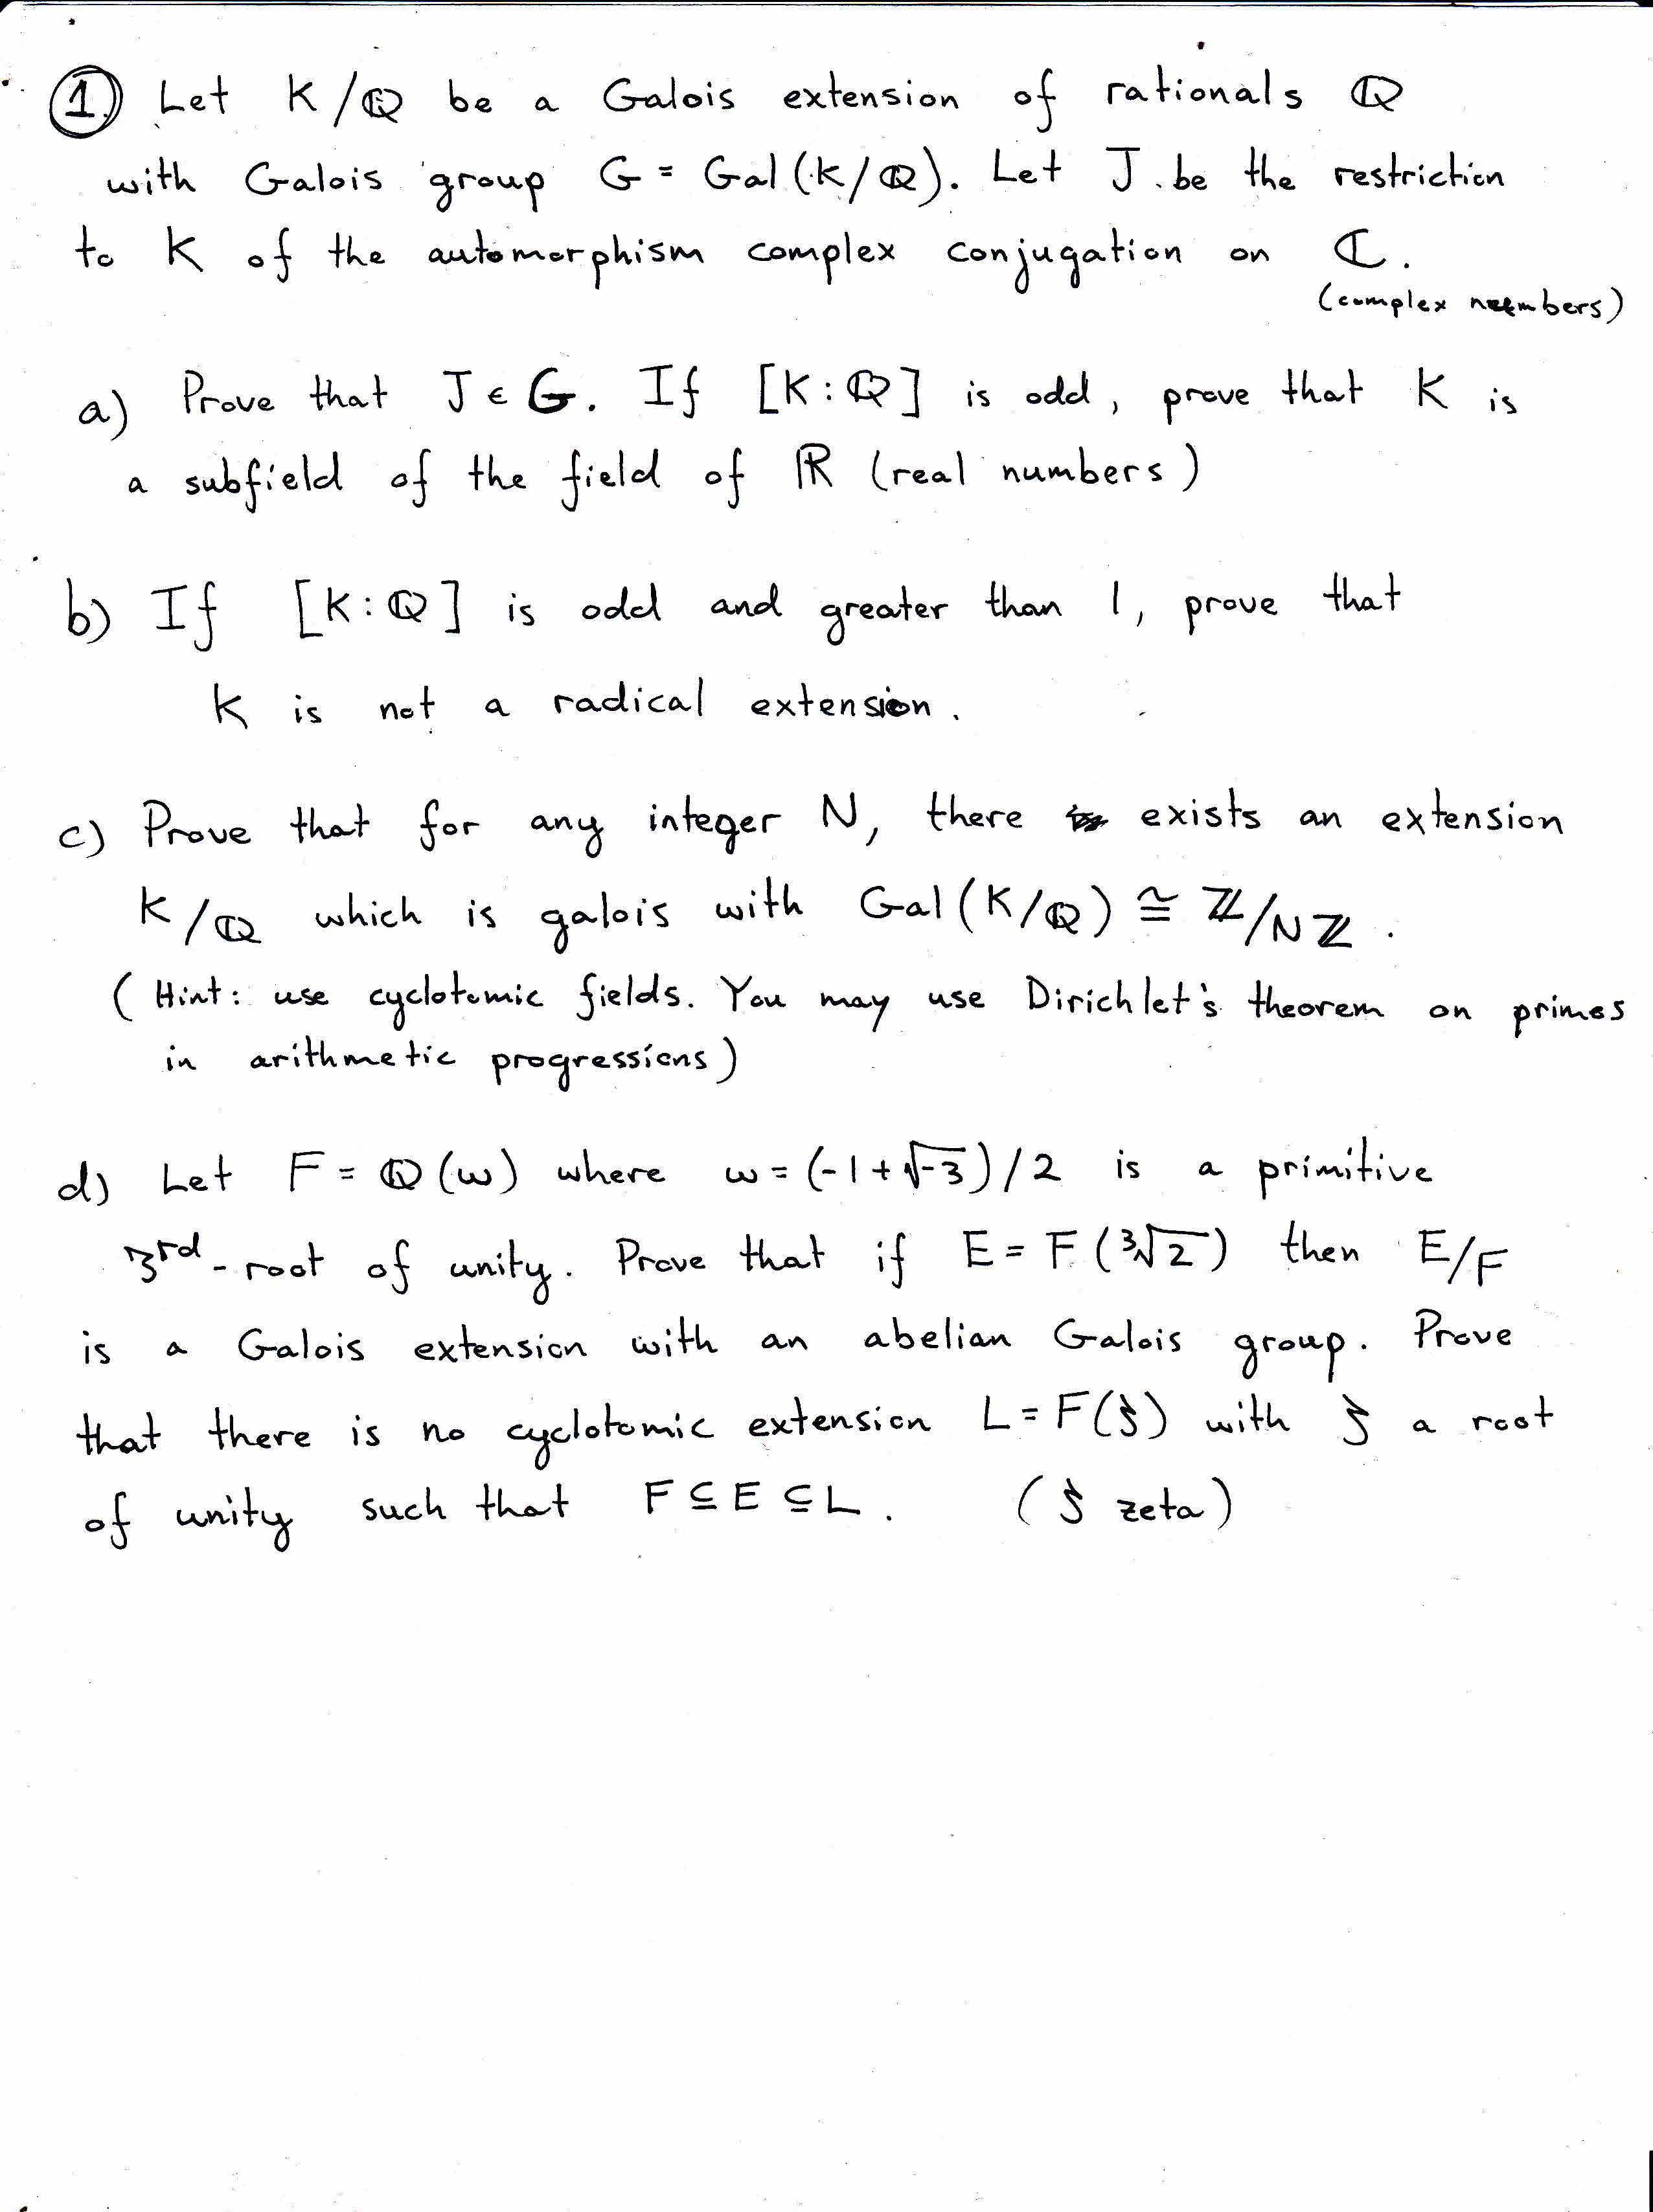 1. Let K/ℚ be a Galois extension of rationals ℚ
with Galois group G = Gal(K/ℚ). Let J be the restriction
to K of the automorphism complex conjugation on ℂ.
(complex numbers)
a) Prove that J ∈ G. If [K:ℚ] is odd, prove that K is
a subfield of the field of ℝ (real numbers)
b) If [K:ℚ] is odd and greater than 1, prove that
K is not a radical extension.
c) Prove that for any integer N, there exists an extension
K/ℚ which is galois with Gal(K/ℚ) ≅ ℤ/Nℤ.
(Hint: use cyclotomic fields. You may use Dirichlet's theorem on primes
in arithmetic progressions)
d) Let F = ℚ(ω) where ω = (-1+√-3)/2 is a primitive
3rd-root of unity. Prove that if E = F(∛2) then E/F
is a Galois extension with an abelian Galois group. Prove
that there is no cyclotomic extension L = F(ζ) with ζ a root
of unity such that F ⊆ E ⊆ L. (ζ zeta)